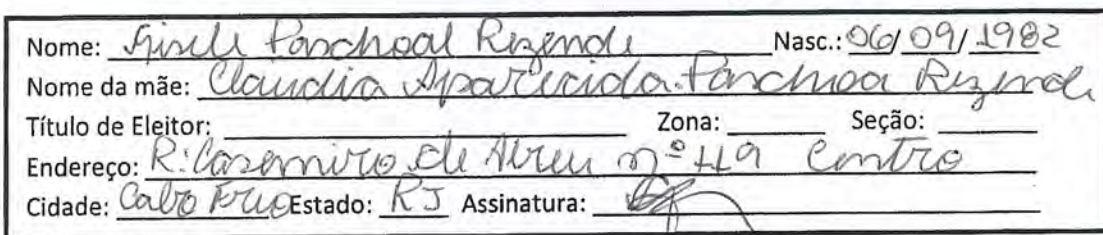 Nome: Gisele Paschoal Rezende Nasc.: 06/09/1982
Nome da mãe: Claudia Aparecida Paschoa Rezende
Título de Eleitor: Zona: Seção:
Endereço: R: Casemiro de Abreu nº 119 Centro
Cidade: Cabo Frio Estado: RJ Assinatura: